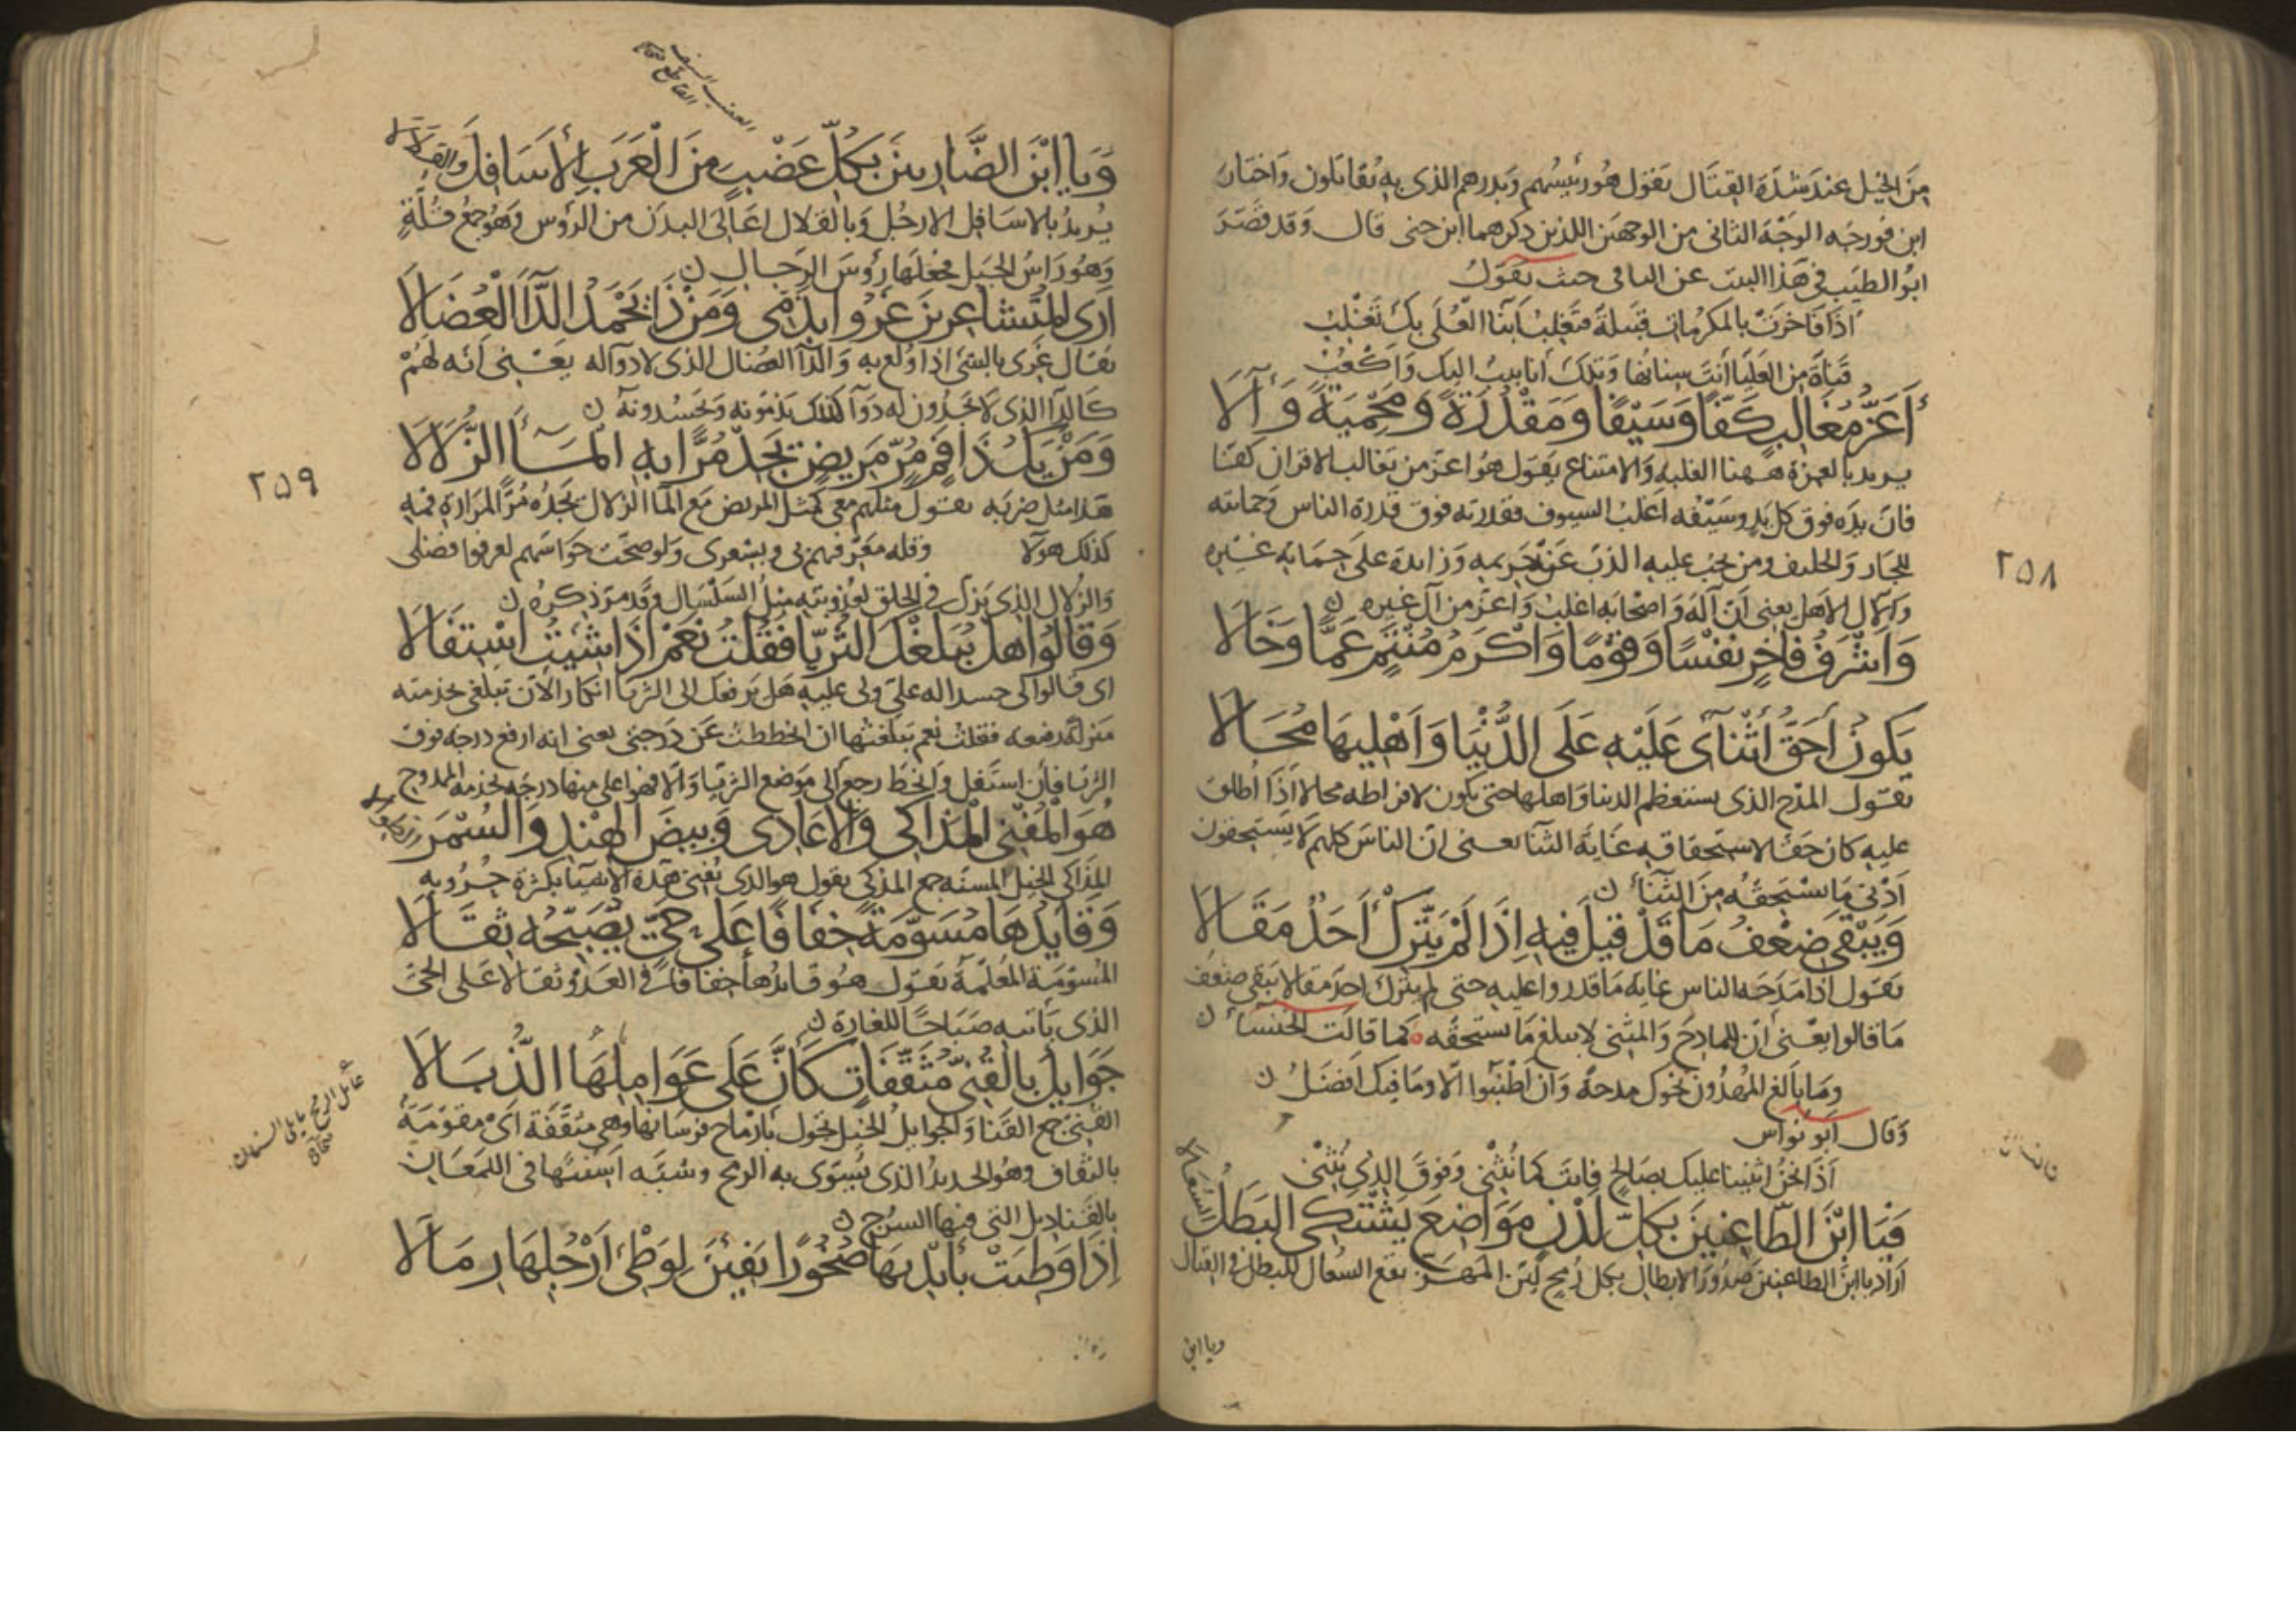 من الخيل عند شدة القتال يقول هو رئيسهم وبدرهم الذى به يقاتلون واختار
ابن فورجه الوجه الثانى من الوجهين اللذين ذكرهما ابن جنى قال وقد قصر
ابو الطيب فى هذا البيت عن النامى حيث يقول
اذا فاخرت بالمكرمات قبيلة فتغلب ابنا العلى بك تغلب
قناة من العليا أنت سنانها وتلك أنابيب اليك وأكعب
أَعَزُّ مُغَالِبٍ كَفًّا وَسَيْفًا وَمَقْدُرَةً وَمَحْمِيَةً وَآلَا
يريد بالعزة ههنا الغلبه والامتناع يقول هو اعز من يغالب الاقران كفا
فان يده فوق كل يد وسيفه اغلب السيوف فقدرته فوق قدرة الناس وحمايته
للجار والحليف ومن يجب عليه الذب عن حريمه وزائدة على حماية غيره
والآل الاهل يعنى ان آله واصحابه اغلب واعز من آل غيره ن
وَأَشْرَفُ فَاخِرٍ نَفْسًا وَقَوْمًا وَأَكْرَمُ مُنْتَمٍ عَمًّا وَخَالَا
يَكُونُ أَحَقُّ أَثْنَآءٍ عَلَيْهِ عَلَى الدُّنْيَا وَأَهْلِيهَا مُحَالَا
يقول المدح الذى يستعظم الدنيا واهلها حتى يكون لافراطه محالا اذا اطلق
عليه كان حقا لاستحقاقه غاية الثنا يعنى ان الناس كلهم لا يستحقون
أدنى ما يستحقه من الثنآء ن
وَيَبْقَى ضِعْفُ مَا قَدْ قِيلَ فِيهِ إِذَا لَمْ يَتَّرِكْ أَحَدٌ مَقَالَا
يقول اذا مدحه الناس غاية ما قدروا عليه حتى لم يترك احد مقالا يبقى ضعف
ما قالوا يعنى ان المادح والمثنى لا يبلغ ما يستحقه كما قالت الخنسآء ن
وما بالغ المهدون نحوك مدحة وان اطنبوا الا وما فيك افضل ن
وقال ابو نواس
اذا نحن اثنينا عليك بصالح فانت كما نثنى وفوق الذى نثنى
فَيَا ابْنَ الطَّاعِنِينَ بِكُلِّ لَدْنٍ مَوَاضِعَ يَشْتَكِي البَطَلُ السُّعَالَا
أراد يا ابن الطاعنين صدور الابطال بكل رمح لين المهز يقع السعال للبطل فى القتال
ويا ابن
٢٥٨
العضب السيف
القاطع
وَيَا ابْنَ الضَّارِبِينَ بِكُلِّ عَضْبٍ مِنَ الْعَرَبِ الأَسَافِلَ وَالقِلَالَا
يريد بالاسافل الارجل وبالقلال اعالى البدن من الرؤس وهو جمع قلة
وهو راس الجبل فجعلها رؤس الرجال ن
أَرَى المُتَشَاعِرِينَ غَرُوا بِذَمِّي وَمَنْ ذَا يَحْمَدُ الدَّآءَ الْعُضَالَا
يقال غرى بالشئ اذا اولع به والدآء العضال الذى لا دوآ له يعنى أنه لهم
كالدآء الذى لا يجدون له دوآ كذلك يذمونه ويحسدونه ن
وَمَنْ يَكُ ذَا فَمٍ مُرٍّ مَرِيضٍ يَجِدْ مُرًّا بِهِ الْمَآءَ الزُّلَالَا
هذا مثل ضربه يقول مثلهم معى كمثل المريض مع المآ الزلال يجده مرا لمرارة فمه
كذلك هولا وقله معرفتهم بى وبشعرى ولو صحت حواسهم لعرفوا فضلى
والزلال الذى يزل فى الحلق لعذوبته مثل السلسال وقد مر ذكره ن
وَقَالُوا هَلْ يُبَلِّغُكَ الثُّرَيَّا فَقُلْتُ نَعَمْ اذَا شِئْتُ اسْتِفَالَا
اى قالوا لى حسدا له على ولى عليه هل يرفعك الى الثريا انكارا لان تبلغى خدمته
منزلة رفيعه فقلت نعم يبلغنيها ان انحططت عن درجتى يعنى انه ارفع درجه فوق
الثريا فان استفل وانحط رجع الى موضع الثريا والا فهو اعلى منها درجه لخدمه الممدوح
هُوَ الْمُفْنِي الْمَذَاكِي وَالأَعَادِي وَبِيضَ الْهِنْدِ وَالسُّمْرَ
المذاكى الخيل المسنه جمع المذكى يقول هو الذى يفنى هذه الاشيآ بكثرة حروبه
وَقَايِدُهَا مُسَوَّمَةً خِفَافًا عَلَى حَيٍّ يُصَبِّحُهُ ثِقَالَا
المسومة المعلمة يقول هو قائدها خفافا فى العدو ثقالا على الحى
الذى ياتيه صباحا للغارة ن
جَوَايِلَ بِالْقُنِيِّ مُثَقَّفَاتٍ كَأَنَّ عَلَى عَوَامِلِهَا الذُّبَالَا
القنى جمع القنا والجوايل الخيل تجول بأرماح فرسانها وهى مثقفة اى مقومة
بالثقاف وهو الحديد الذى يسوى به الرمح وشبه اسنتها فى اللمعان
بالقناديل التى فيها السرج ن
إِذَا وَطِئَتْ بِأَيْدِيهَا صُخُورًا يَفِئْنَ لِوَطْئِ أَرْجُلِهَا رِمَالَا
٢٥٩
عامل الرمح ما يلى السنان